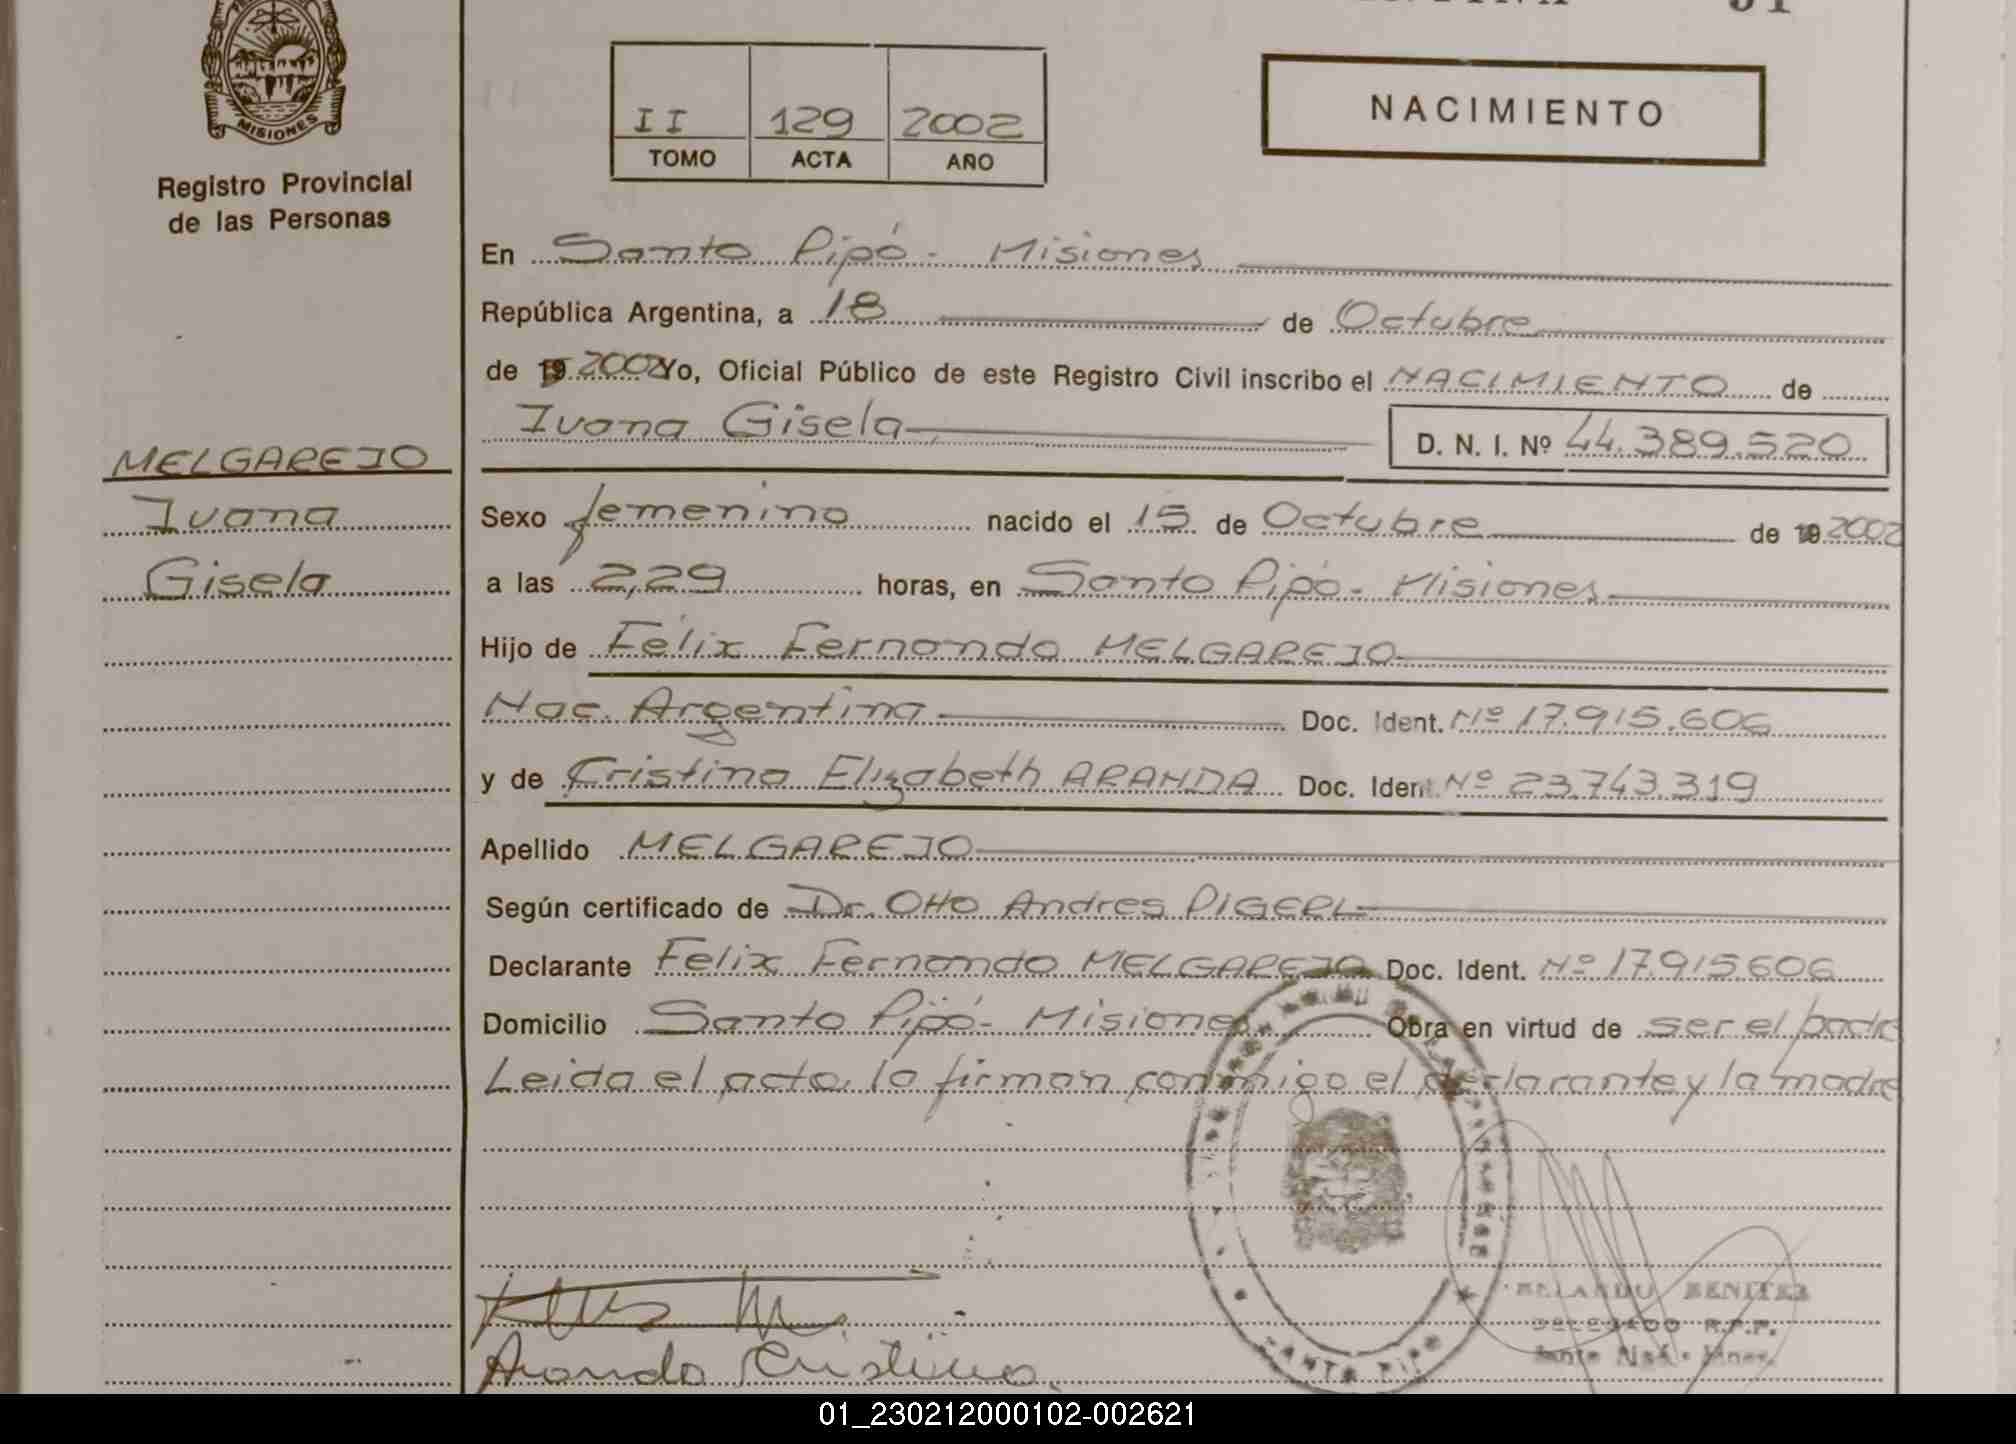 MISIONES
Registro Provincial
de las Personas
II 129 2002
TOMO ACTA AÑO
NACIMIENTO
En Santo Pipó - Misiones
República Argentina, a 18 de Octubre
de 19 2002 Yo, Oficial Público de este Registro Civil inscribo el NACIMIENTO de
Ivana Gisela D. N. I. Nº 44.389.520
MELGAREJO
Ivana
Gisela
Sexo femenino nacido el 15 de Octubre de 19 2002
a las 2,29 horas, en Santo Pipó - Misiones
Hijo de Félix Fernando MELGAREJO
Nac. Argentina Doc. Ident. Nº 17.915.606
y de Cristina Elizabeth ARANDA Doc. Ident. Nº 23.743.319
Apellido MELGAREJO
Según certificado de Dr. Otto Andres PIGERL
Declarante Felix Fernando MELGAREJO Doc. Ident. Nº 17.915.606
Domicilio Santo Pipó - Misiones Obra en virtud de ser el padre
Leida el acta, la firman conmigo el declarante y la madre
BENITEZ
DELEGADO R.P.P.
Aranda Cristina
SANTO PIPO
01_230212000102-002621